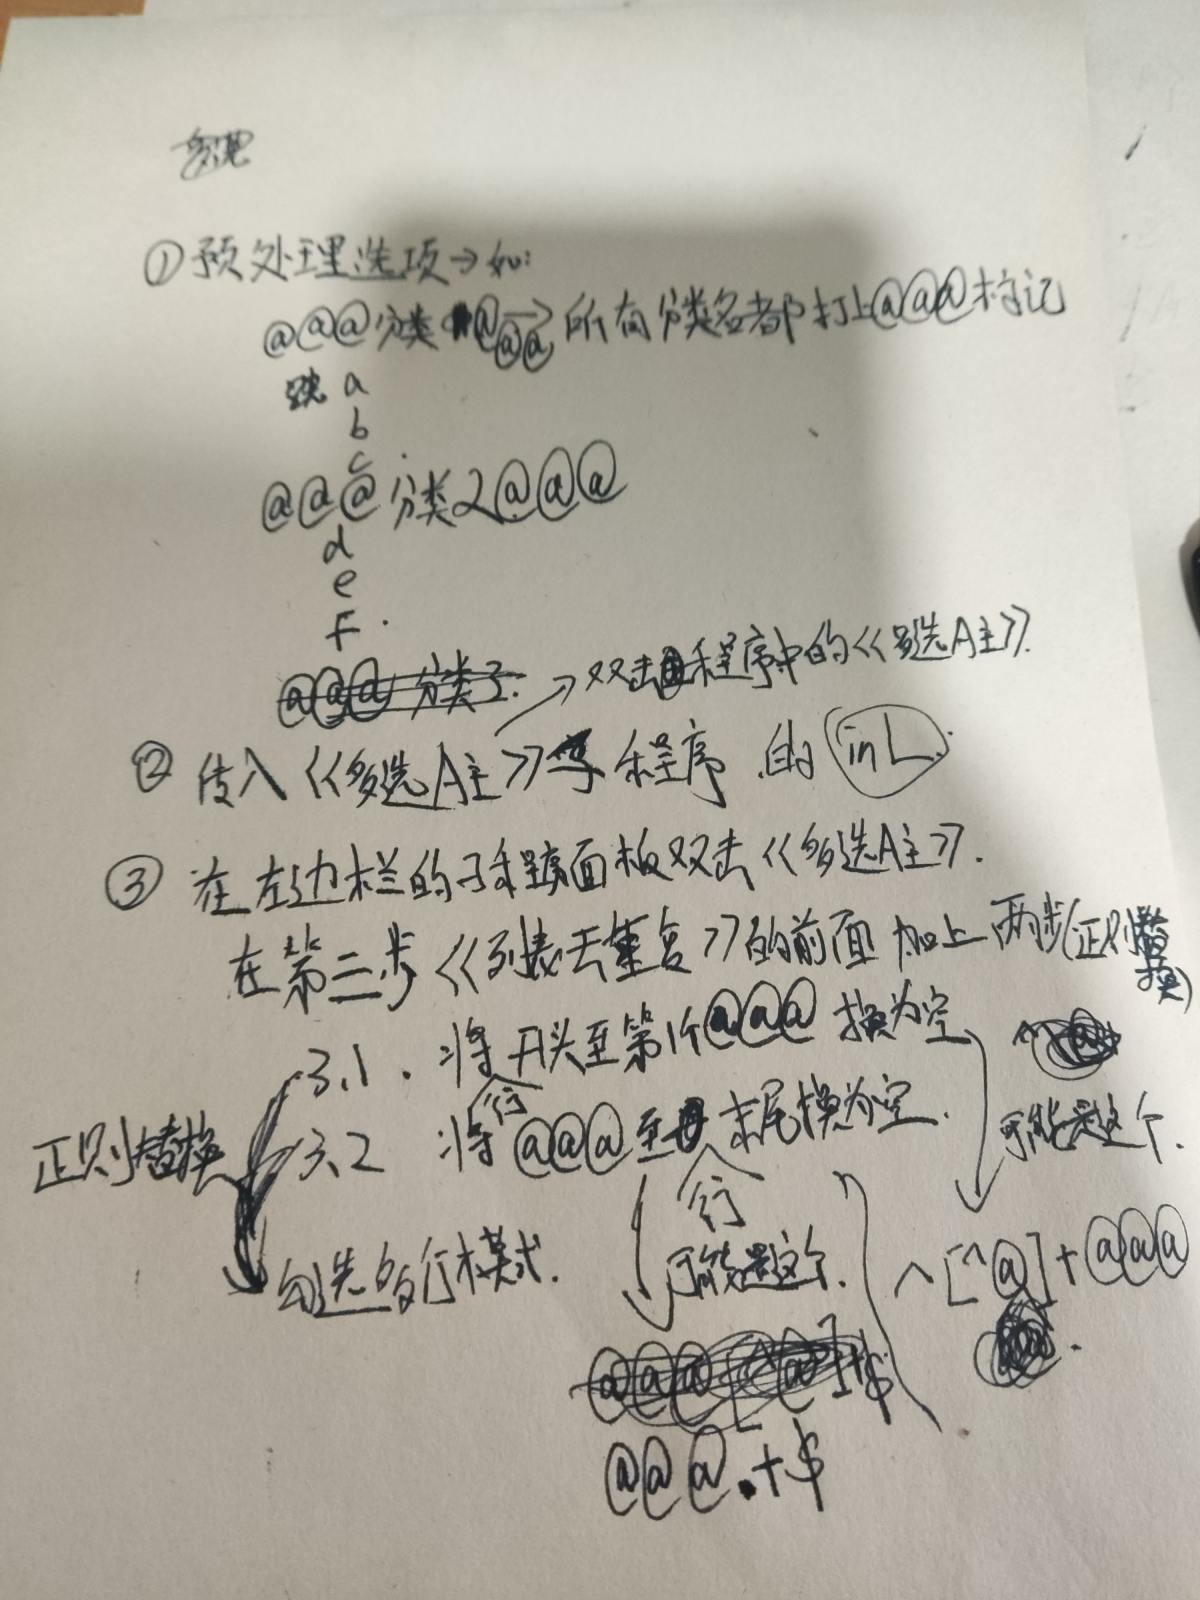 ①预处理选项→如:
@@@分类 @@@→所有分类名都打上@@@标记
a
b
c
@@@分类2@@@
d
e
F
→双击程序中的《多选A主》.
②传入《多选A主》子程序的inL.
③在左边栏的子程序面板双击《多选A主》.
在第二步《列表去重复》的前面加上两步(正则替换)
3.1.将开头至第1个@@@换为空
3.2 将行@@@至行末尾换为空.
正则替换
勾选多行模式.
可能是这个.
^[^@]+@@@
可能是这个.
@@@.+$